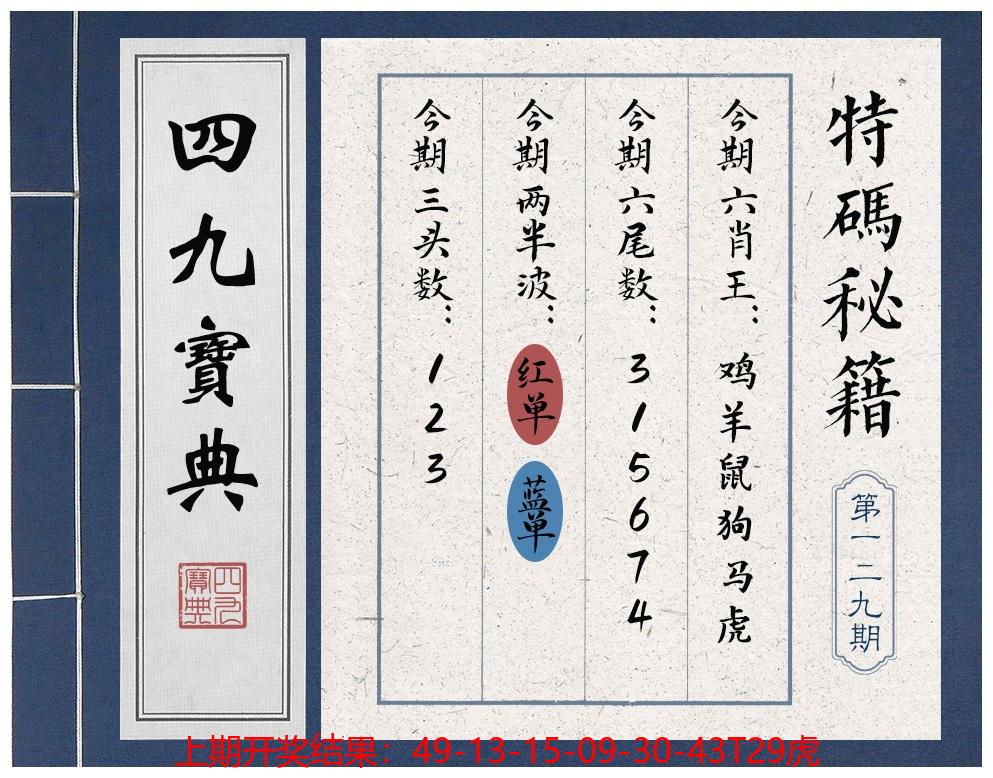 四九寶典
四九寶典
特碼秘籍
第一二九期
今期六肖王：鸡羊鼠狗马虎
今期六尾数：315674
今期两半波：红单 蓝单
今期三头数：123
上期开奖结果：49-13-15-09-30-43T29虎